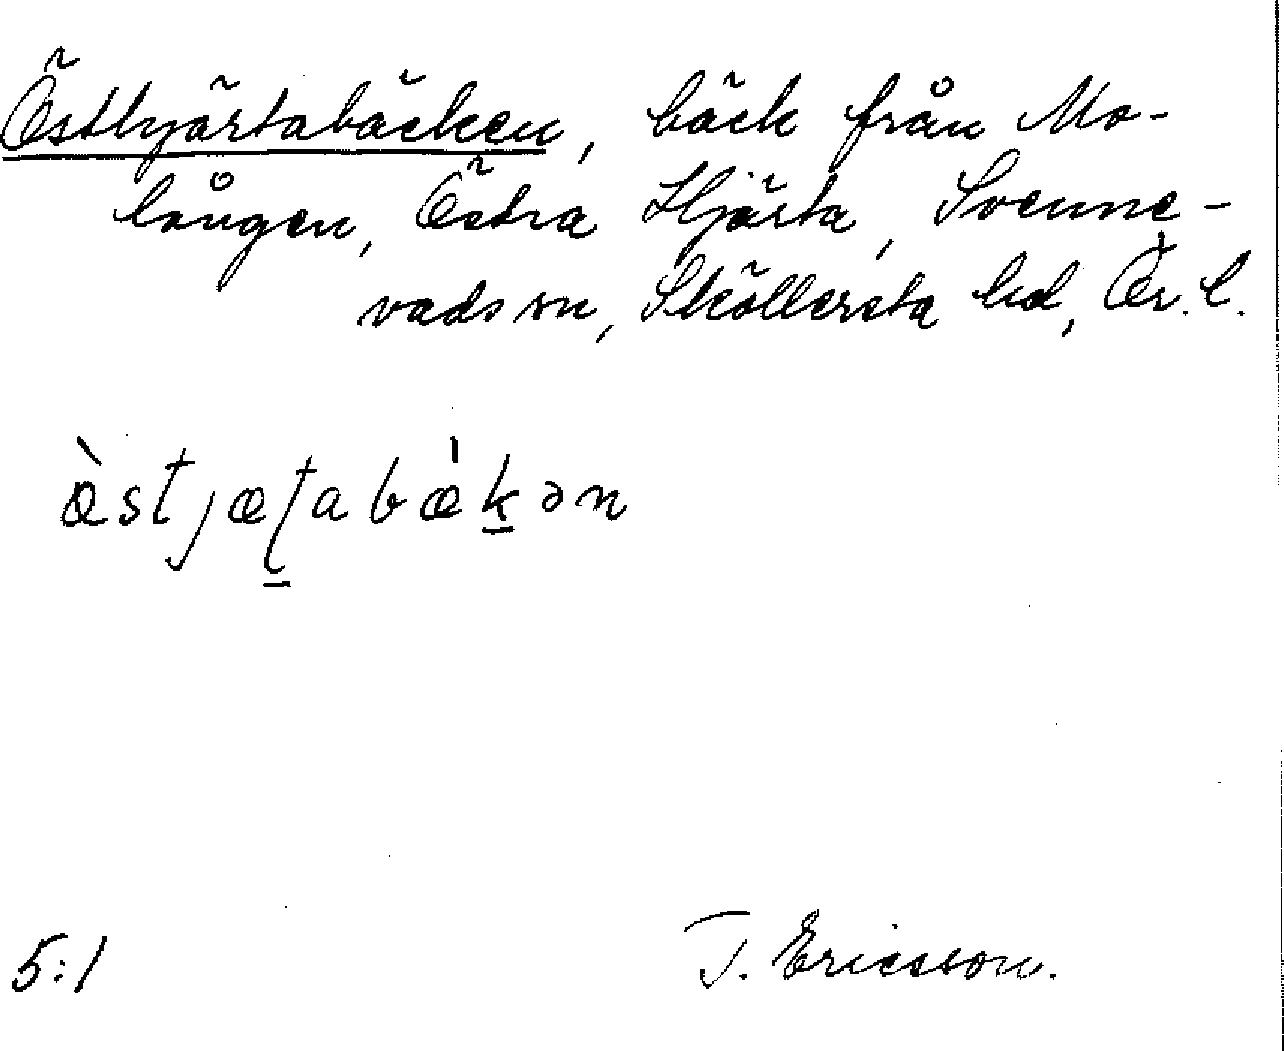 Östhjärtabäcken, bäck från Mo-
lången, Östra Hjärta, Svenne-
vads sn, Sköllersta hd, Ör. l.
ὰstjæʈabæ̍ḵən
5:1
T. Ericsson.